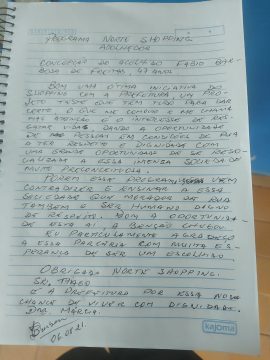 PROGRAMA NORTE SHOPPING
ACOLHEDOR
CONCEPÇÃO DO ACOLHIDO FABIO BAR
BOSA DE FREITAS, 47 ANOS
BOM UMA ÓTIMA INICIATIVA DO
SHOPPING COM A PREFEITURA UM PRO
JETO TESTE QUE TEM TUDO PARA DAR
CERTO O QUE ME COMOVE E ME CHAMA
MAS ATENÇÃO É O INTERESSE DE RES
GATAR VIDAS DANDO A OPORTUNIDADE
DE PESSOAS EM CONDIÇÕES DE RUA
A TER RESPEITO DIGNIDADE COM
UMA GRANDE OPORTUNIDADE DE SE RESSO
CIALIZAR A ESSA IMENSA SOCIEDADE
MUITO PRECONCEITUOSA.
PORÉM ESSE PROGRAMA VEM
CONTRADIZER E ENSINAR A ESSA
SOCIEDADE QUE MORADOR DE RUA
TAMBÉM É SER HUMANO DIGNO
DE RESPEITO. BOM A OPORTUNIDA
DE ESTÁ AÍ A BENÇÃO CHEGOU.
EU PARTICULAMENTE AGRADEÇO
A ESSA PARCERIA COM MUITA ES
PERANÇA DE SER UM ESCOLHIDO.
OBRIGADO NORTE SHOPPING.
SR. TIAGO
E A PREFEITURA POR ESSA NOVA
CHANCE DE VIVER COM DIGNIDADE.
DNA MARCIA.
06.08.21
kajoma